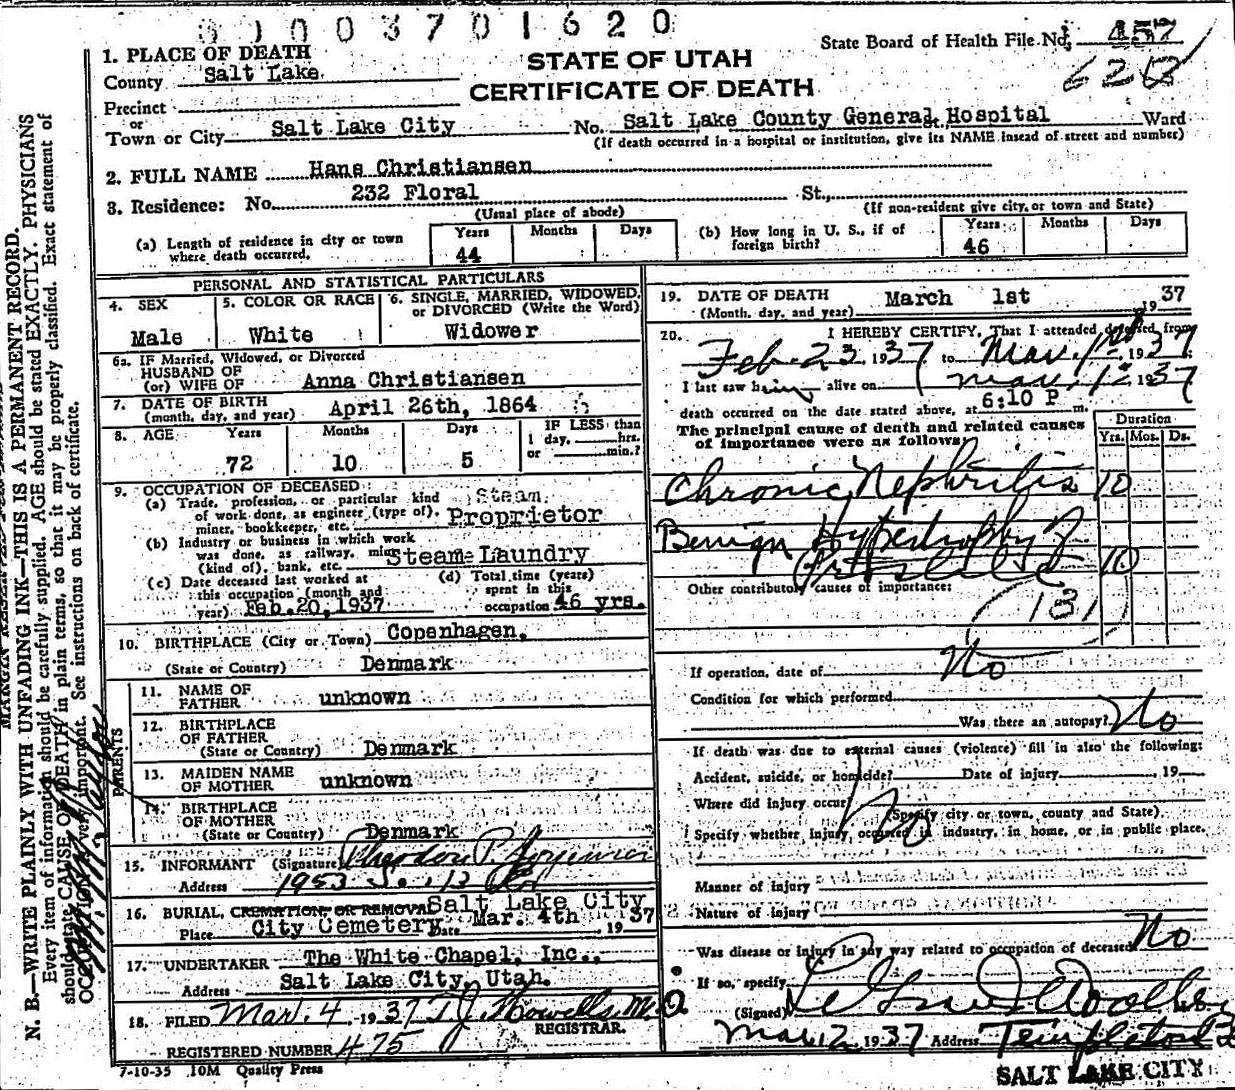 0 1 0 0 3 7 0 1 6 2 0
State Board of Health File No. 457
628
STATE OF UTAH
CERTIFICATE OF DEATH
1. PLACE OF DEATH
County Salt Lake
Precinct
or
Town or City Salt Lake City No. Salt Lake County General Hospital Ward
(If death occurred in a hospital or institution, give its NAME insead of street and number)
2. FULL NAME Hans Christiansen
3. Residence: No. 232 Floral St.,
(Usual place of abode) (If non-resident give city, or town and State)
(a) Length of residence in city or town where death occurred. Years 44 Months Days
(b) How long in U. S., if of foreign birth? Years 46 Months Days
PERSONAL AND STATISTICAL PARTICULARS
4. SEX Male
5. COLOR OR RACE White
6. SINGLE, MARRIED, WIDOWED, or DIVORCED (Write the Word) Widower
6a. IF Married, Widowed, or Divorced
HUSBAND OF
(or) WIFE OF Anna Christiansen
7. DATE OF BIRTH
(month, day, and year) April 26th, 1864
8. AGE Years 72 Months 10 Days 5 IF LESS than 1 day, hrs. or min.?
9. OCCUPATION OF DECEASED
(a) Trade, profession, or particular kind of work done, as engineer (type of), miner, bookkeeper, etc. Steam Proprietor
(b) Industry or business in which work was done, as railway, mine (kind of), bank, etc. Steam Laundry
(c) Date deceased last worked at this occupation (month and year) Feb. 20, 1937
(d) Total time (years) spent in this occupation 46 yrs.
10. BIRTHPLACE (City or Town) Copenhagen,
(State or Country) Denmark
PARENTS
11. NAME OF FATHER unknown
12. BIRTHPLACE OF FATHER
(State or Country) Denmark
13. MAIDEN NAME OF MOTHER unknown
14. BIRTHPLACE OF MOTHER
(State or Country) Denmark
15. INFORMANT (Signature) Theodore P. Jorgensen
Address 1953 So. 13
16. BURIAL, CREMATION, OR REMOVAL Salt Lake City
Place City Cemetery Date Mar. 4th 1937
17. UNDERTAKER The White Chapel, Inc.,
Address Salt Lake City, Utah.
18. FILED Mar. 4, 1937 T. J. Howells, M.D.
REGISTRAR.
REGISTERED NUMBER 475
7-10-35 10M Quality Press
19. DATE OF DEATH
(Month, day, and year) March 1st 1937
20. I HEREBY CERTIFY, That I attended deceased from
Feb. 23 1937 to Mar. 1st 1937
I last saw him alive on Mar. 1 1937
death occurred on the date stated above, at 6:10 P m.
The principal cause of death and related causes of importance were as follows:
Duration
Yrs. Mos. Ds.
Chronic Nephritis 10
Benign Hypertrophy of
Prostate 10
Other contributory causes of importance:
131
If operation, date of No
Condition for which performed
Was there an autopsy? No
If death was due to external causes (violence) fill in also the following:
Accident, suicide, or homicide? Date of injury 19
Where did injury occur No
(Specify city or town, county and State)
Specify whether injury occurred in industry, in home, or in public place.
Manner of injury
Nature of injury
Was disease or injury in any way related to occupation of deceased No
If so, specify
(Signed)
Mar. 2 1937 Address Templeton B
SALT LAKE CITY
N. B.—WRITE PLAINLY WITH UNFADING INK—THIS IS A PERMANENT RECORD.
Every item of information should be carefully supplied. AGE should be stated EXACTLY. PHYSICIANS
should state CAUSE OF DEATH in plain terms, so that it may be properly classified. Exact statement of
OCCUPATION is very important. See instructions on back of certificate.